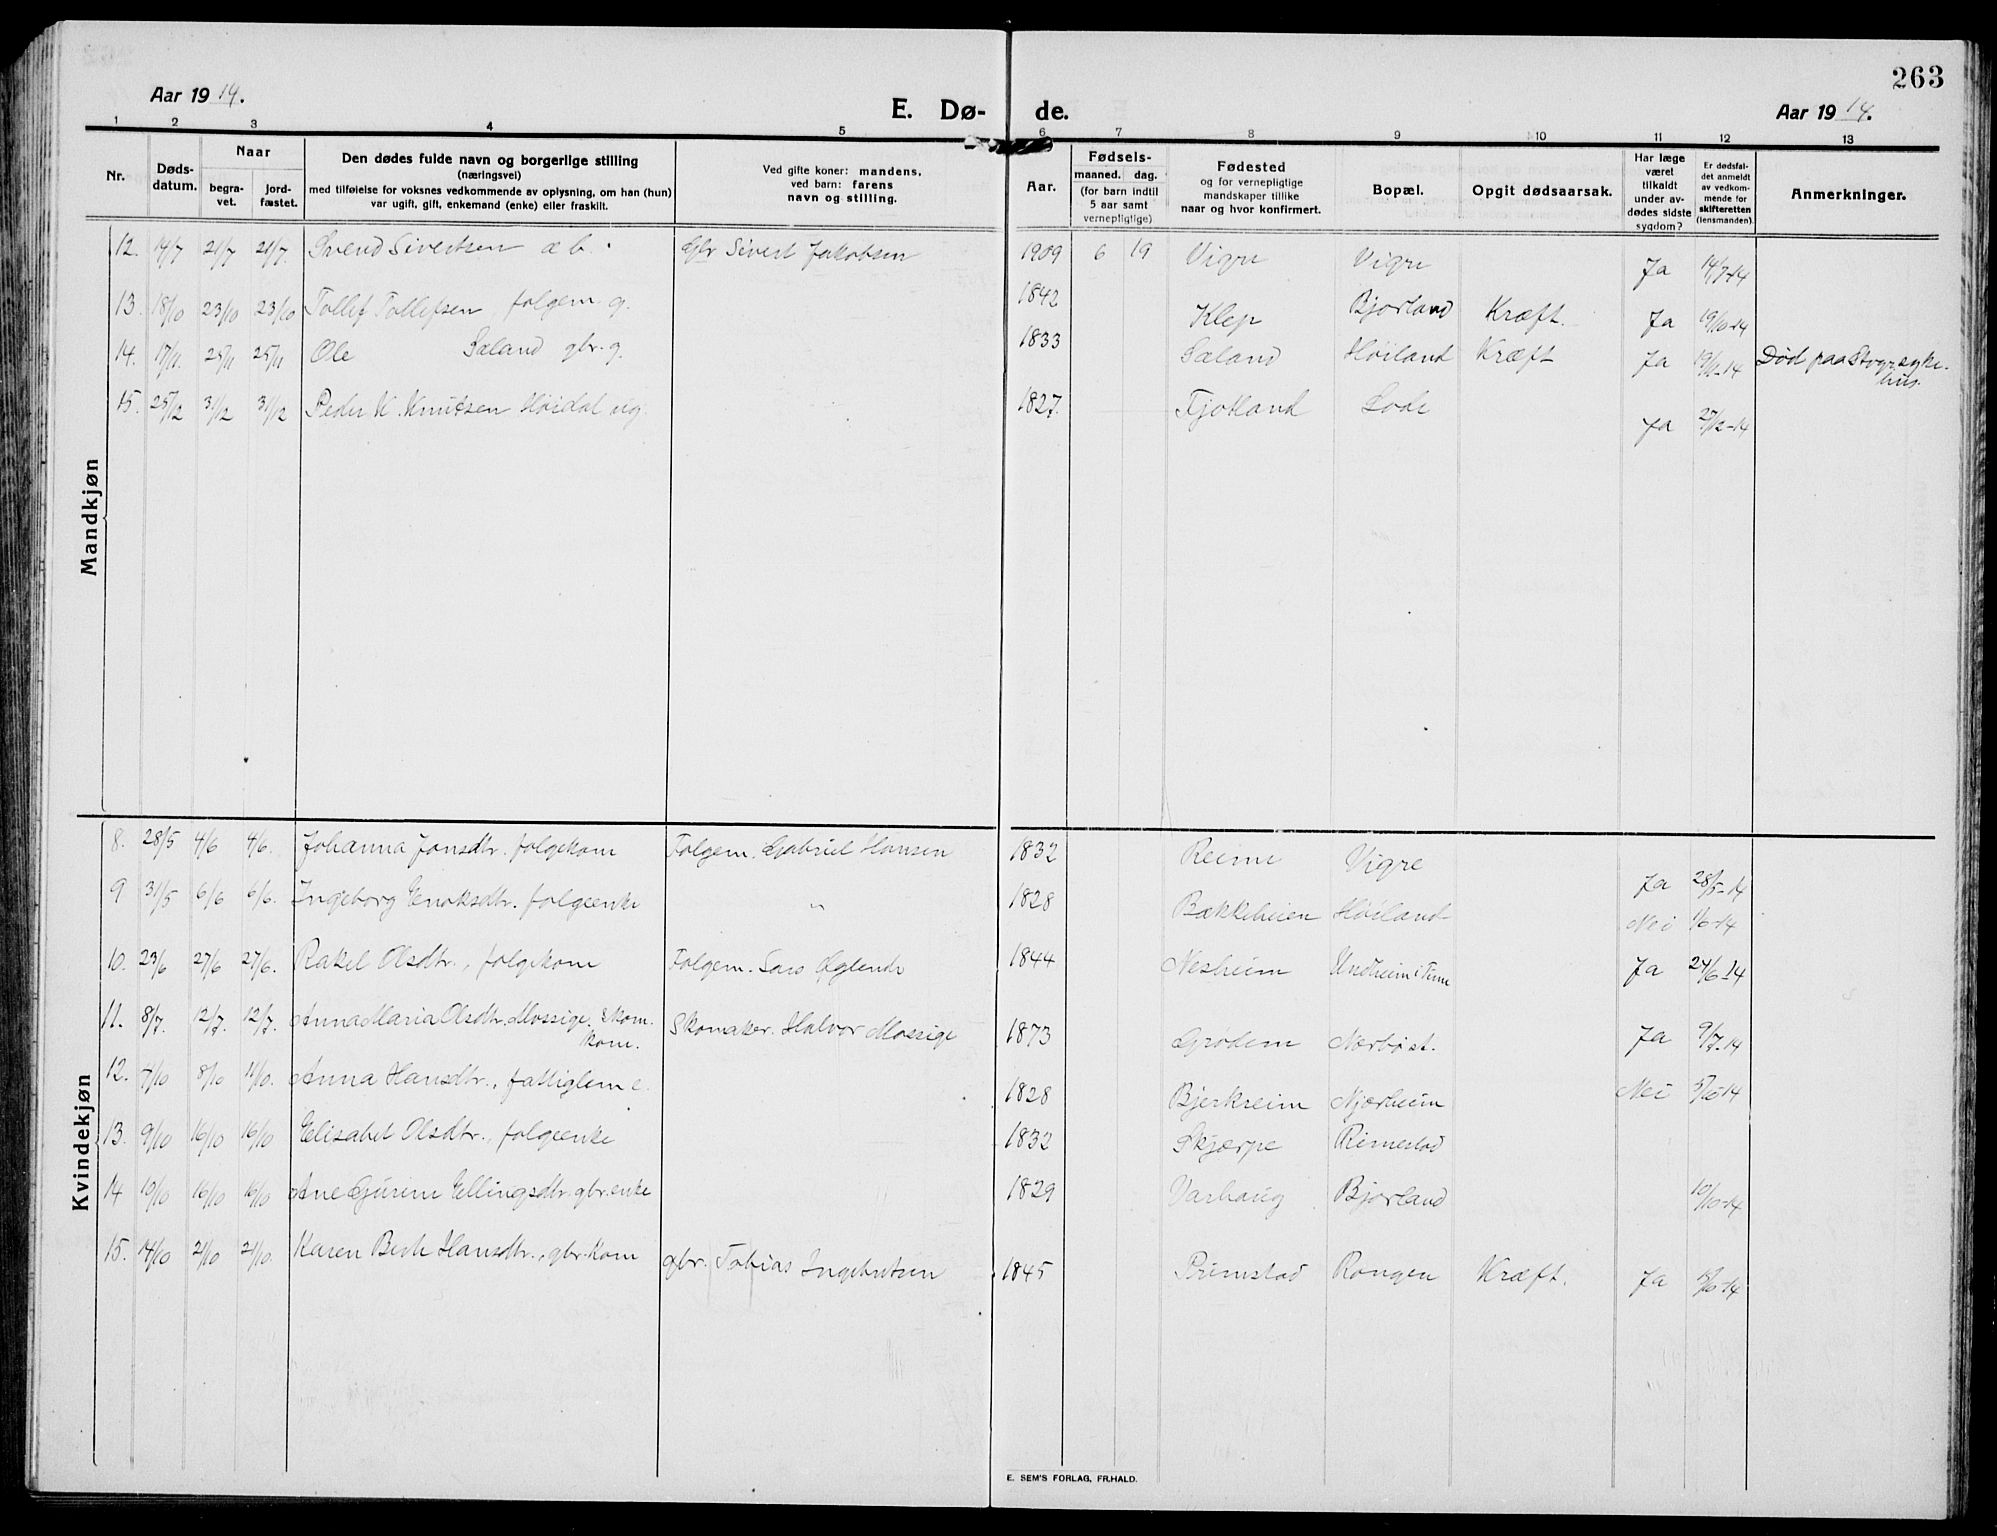 263
Aar 1914.
E. Dø- de.
Aar 1914.
1 2 3 4 5 6 7 8 9 10 11 12 13
Nr.
Døds-
datum.
Naar
begra-
vet.
jord-
fæstet.
Den dødes fulde navn og borgerlige stilling
(næringsvei)
med tilføielse for voksnes vedkommende av oplysning, om han (hun)
var ugift, gift, enkemand (enke) eller fraskilt.
Ved gifte koner: mandens,
ved barn: farens
navn og stilling.
Aar.
Fødsels-
maaned. dag.
(for barn indtil
5 aar samt
vernepligtige)
Fødested
og for vernepligtige
mandskaper tillike
naar og hvor konfirmert.
Bopæl.
Opgit dødsaarsak.
Har læge
været
tilkaldt
under av-
dødes sidste
sygdom?
Er dødsfal-
det anmeldt
av vedkom-
mende for
skifteretten
(lensmanden).
Anmerkninger.
Mandkjøn
12. 14/7 21/7 21/7. Svend Sivertsen æ b. Gbr Sivert Jakobsen 1909 6 19 Vigre Vigre Ja 14/7-14
13. 18/10 23/10 23/10 Tollef Tollefsen, folgem. g. 1842 Klep Bjorland Kræft. Ja 19/10-14
14. 17/11. 25/11 25/11 Ole Sæland gbr. g. 1833 Sæland Høiland Kræft Ja 19/11-14 Død paa Stvgr. syke-
hus.
15. 25/12 31/12 31/12 Peder K. Knutsen Høidal ug. 1827. Fjotland Lode Ja 27/12-14
Kvindekjøn
8. 28/5 4/6 4/6. Johanna Jonsdtr. folgekom Folgem. Gabriel Hansen 1832 Reime Vigre Ja 28/5-14
9 31/5 6/6 6/6. Ingeborg Enoksdtr. folgeenke " 1828 Bækkeheien Høiland Nei 1/6-14
10. 23/6 27/6 27/6. Rakel Olsdtr., folgekone Folgem. Lars Øglende 1844 Nesheim Undheim i Time Ja 24/6-14
11. 8/7. 12/7. 12/7. Anna Maria Olsdtr. Mossige. Skom.
kom. Skomaker. Halvor Mossige 1873 Grødem Nærbø st. Ja 9/7-14
12. 4/10 8/10 11/10. Anna Hansdtr., fattiglem e. 1828 Bjerkreim Njærheim Nei 5/10-14
13. 9/10 16/10 16/10 Elisabet Olsdtr., folgeenke 1832 Skjærpe Rimestad
14 10/10 16/10 16/10 Ane Gurine Ellingsdtr. gbr. enke 1829 Varhaug Bjorland 10/10-14
15. 14/10 21/10 21/10. Karen Berte Hansdtr., gbr. kone gbr. Tobias Ingebretsen 1845 Primstad Rongen Kræft. Ja
E. SEM'S FORLAG, FR.HALD.